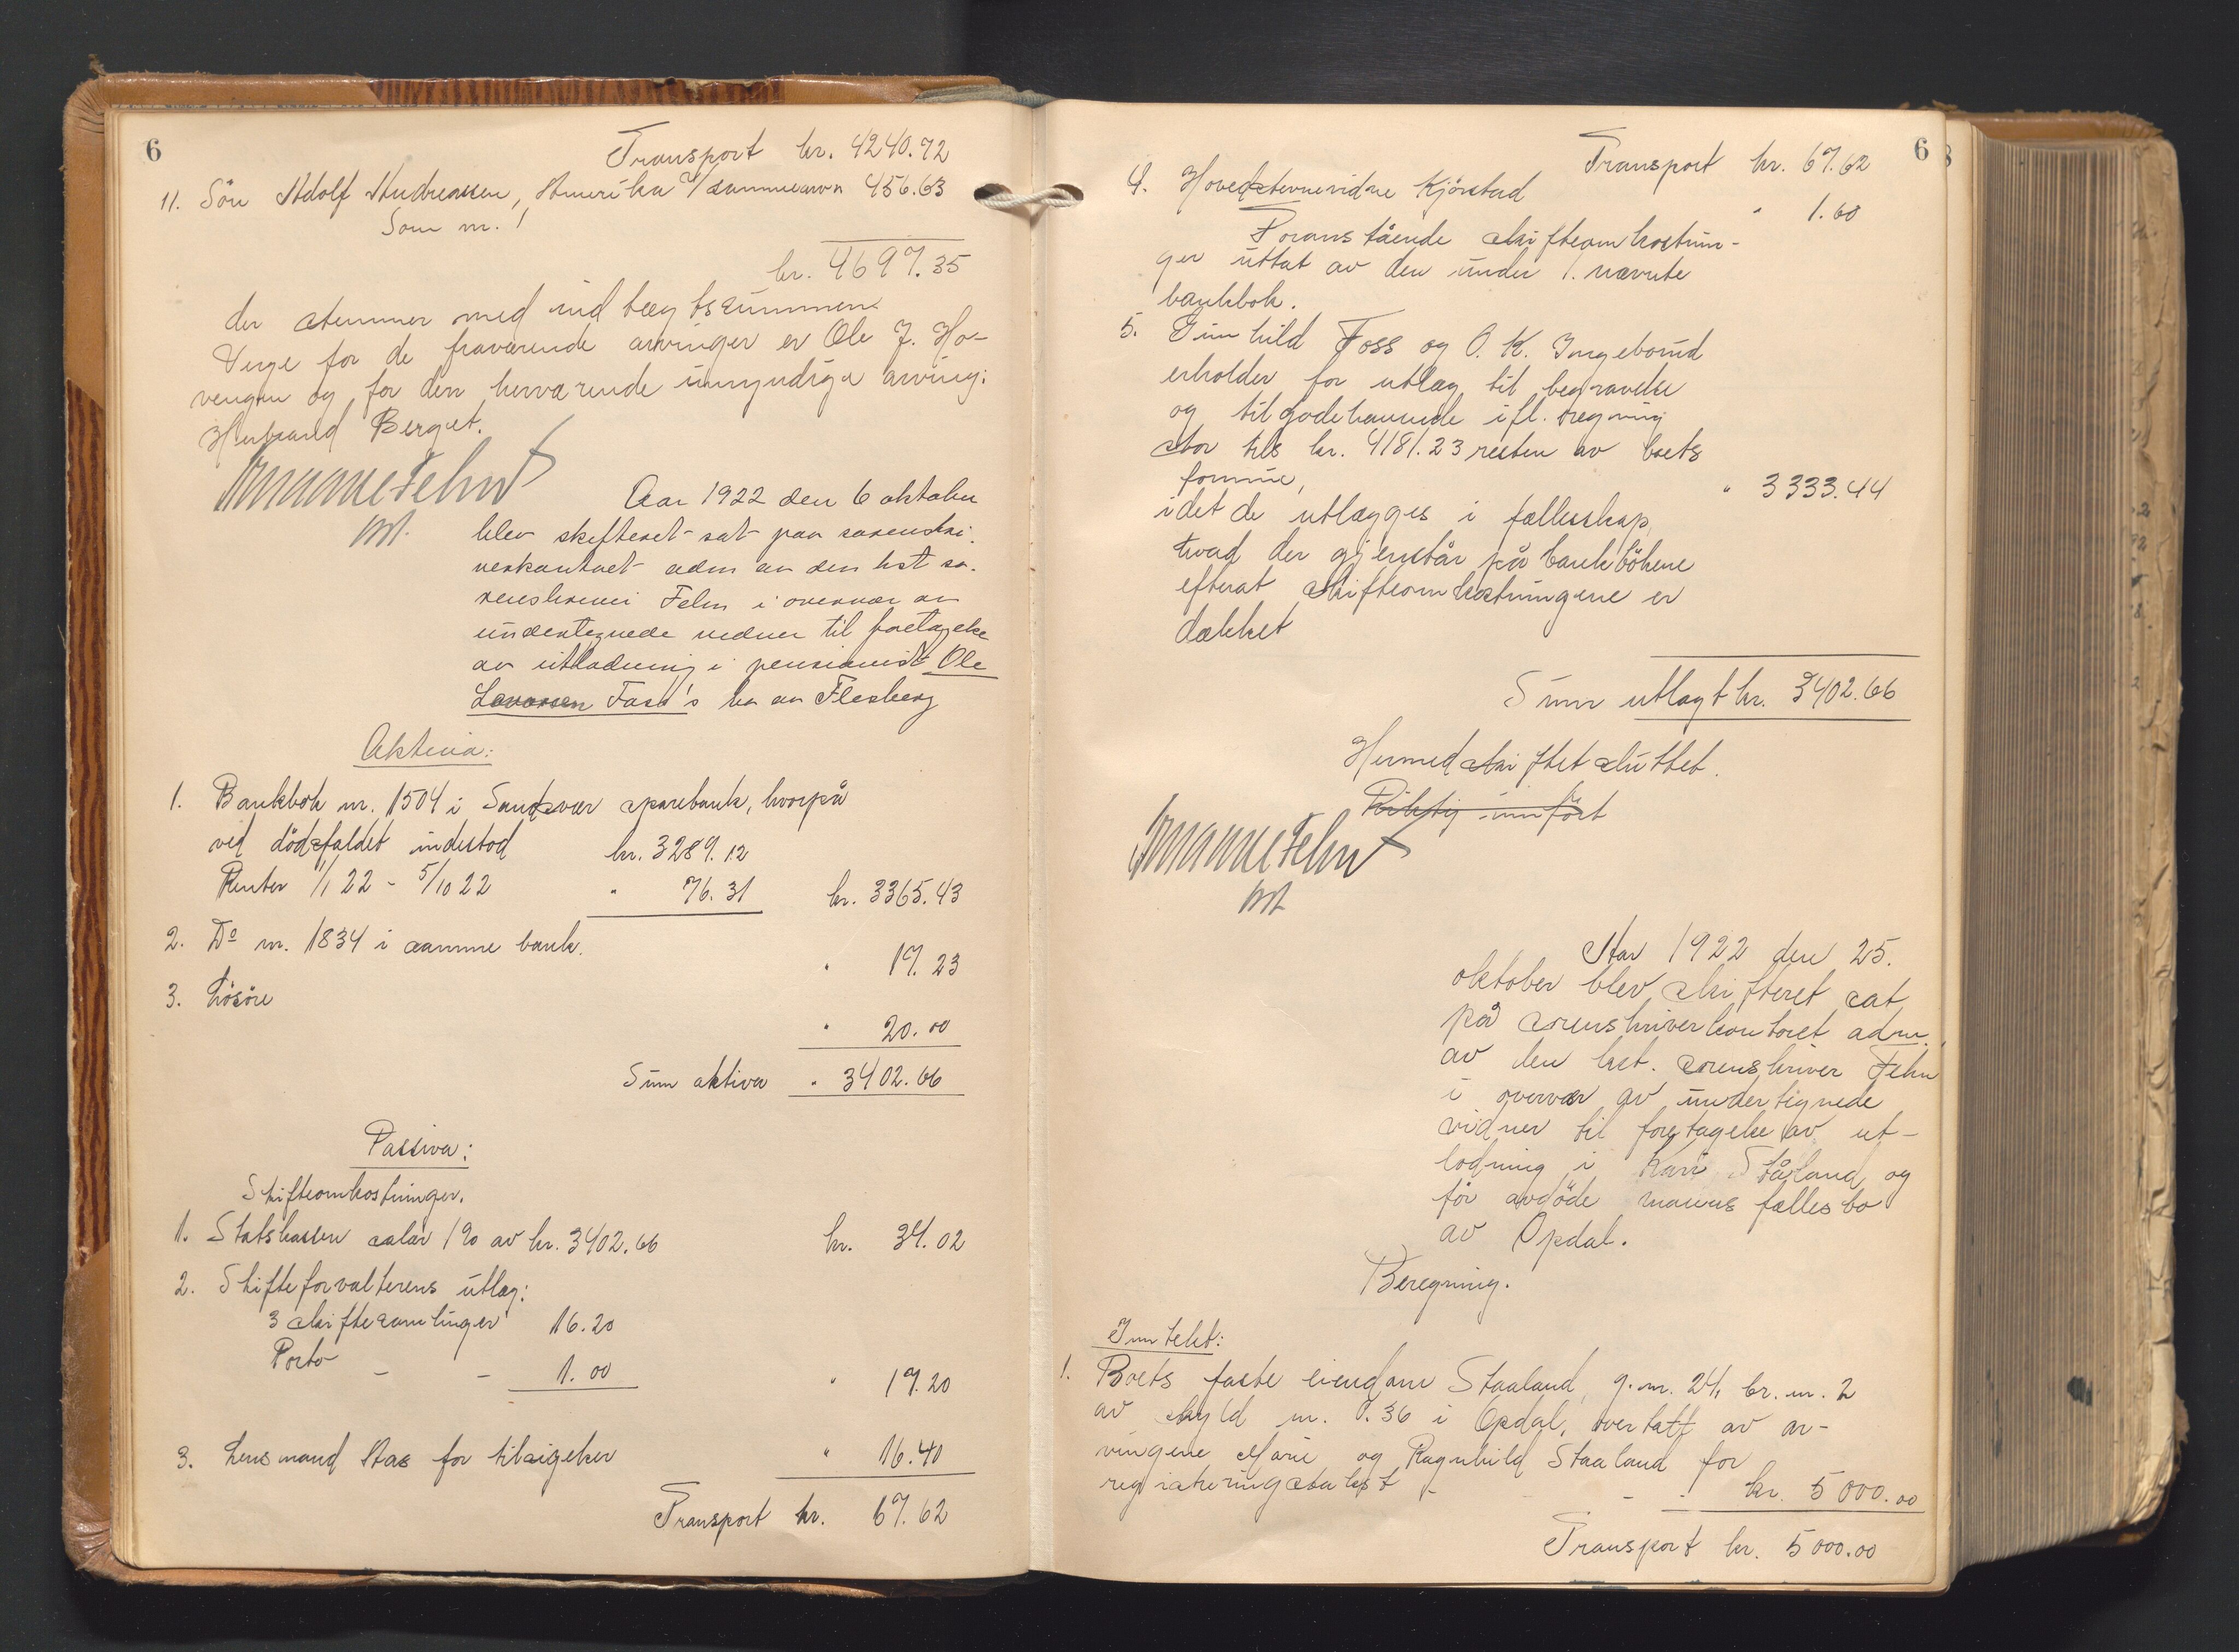 6
Transport kr. 4240.72
11. Sön Adolf Andreassen, Amerika 456.63
Som nr. 1
kr. 4697.35
der stemmer med indtægtssummen.
Verge for de fraværende arvinger er Ole J. Ho-
vengen og for den herværende umyndige arving:
Herbrand Berget.
Aar 1922 den 6 oktober
blev skifteret sat paa sorenskri-
verkontoret adm av den kst so-
renskriver Fehn i overvær av
undertegnede vidner til foretagelse
av utlodning i pensionist Ole
Larsen Foss's bo av Flesberg
Aktiva:
1. Bankbok nr. 1504 i Sandsvær sparebank, hvorpå
ved dödsfaldet indestod kr. 3289.12
Renter 1/1 22 - 5/10 22 " 76.31 kr. 3365.43
2. Do nr. 1834 i samme bank. " 17.23
3. Lösöre " 20.00
Sum aktiva " 3402.66
Passiva:
Skifteomkostninger.
1. Statskassen salær 1% av kr. 3402.66 kr. 34.02
2. Skifteforvalterens utlæg:
3 skiftesamlinger 16.20
Porto - - 1.00 " 17.20
3. Lensmand Aas for tilsigelser " 16.40
Transport kr. 67.62
6
Transport kr. 67.62
4. Hovedstevnevidne Kjörstad " 1.60
Foranstående skifteomkostnin-
ger uttat av den under 1. nævnte
bankbok.
5. Gunhild Foss og O. K. Ingeborud
erholder for utlæg til begravelse
og tilgodehavende ifl. regning
stor tils kr. 4181.23 resten av boets
formue, " 3333.44
idet de utlægges i fællesskap,
hvad der gjenstår på bankbökene
efterat skifteomkostningene er
dækket
Sum utlagt kr. 3402.66
Hermed skiftet sluttet.
Riktig innfört
Aar 1922 den 25.
oktober blev skifteret sat
på sorenskriverkontoret adm.
av den kst. sorenskriver Fehn
i overvær av undertegnede
vidner til foretagelse av ut-
lodning i Kari Ståland og
för avdöde manns fællesbo
av Opdal.
Beregning.
Inntekt:
1. Boets faste eiendom Staaland, g. nr. 24, br. nr. 2
av skyld m. 0.36 i Opdal, overtatt av ar-
vingene Marie og Ragnhild Staaland for
registreringstakst - - - kr. 5000.00
Transport kr. 5000.00